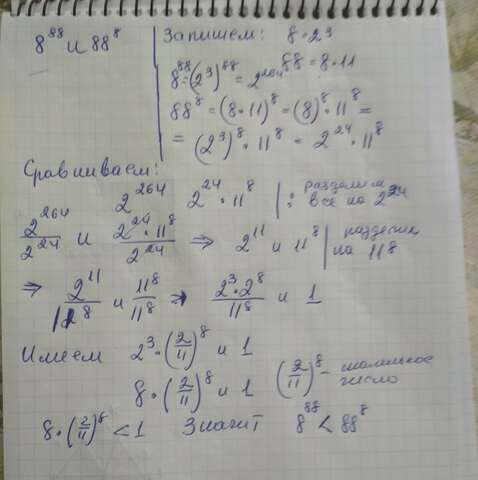 8⁸⁸ и 88⁸
Запишем: 8 = 2³
88 = 8 · 11
8⁸⁸ = (2³)⁸⁸ = 2²⁶⁴
88⁸ = (8 · 11)⁸ = (8)⁸ · 11⁸ =
= (2³)⁸ · 11⁸ = 2²⁴ · 11⁸
Сравниваем:
2²⁶⁴ 2²⁴ · 11⁸ | : разделим все на 2²⁴
2²⁶⁴/2²⁴ и 2²⁴ · 11⁸/2²⁴ ⇒ 2¹¹ и 11⁸ | разделим на 11⁸
⇒ 2¹¹/11⁸ и 11⁸/11⁸ ⇒ 2³ · 2⁸/11⁸ и 1
Имеем 2³ · (2/11)⁸ и 1
8 · (2/11)⁸ и 1 (2/11)⁸ - маленькое число
8 · (2/11)⁸ < 1 Значит 8⁸⁸ < 88⁸